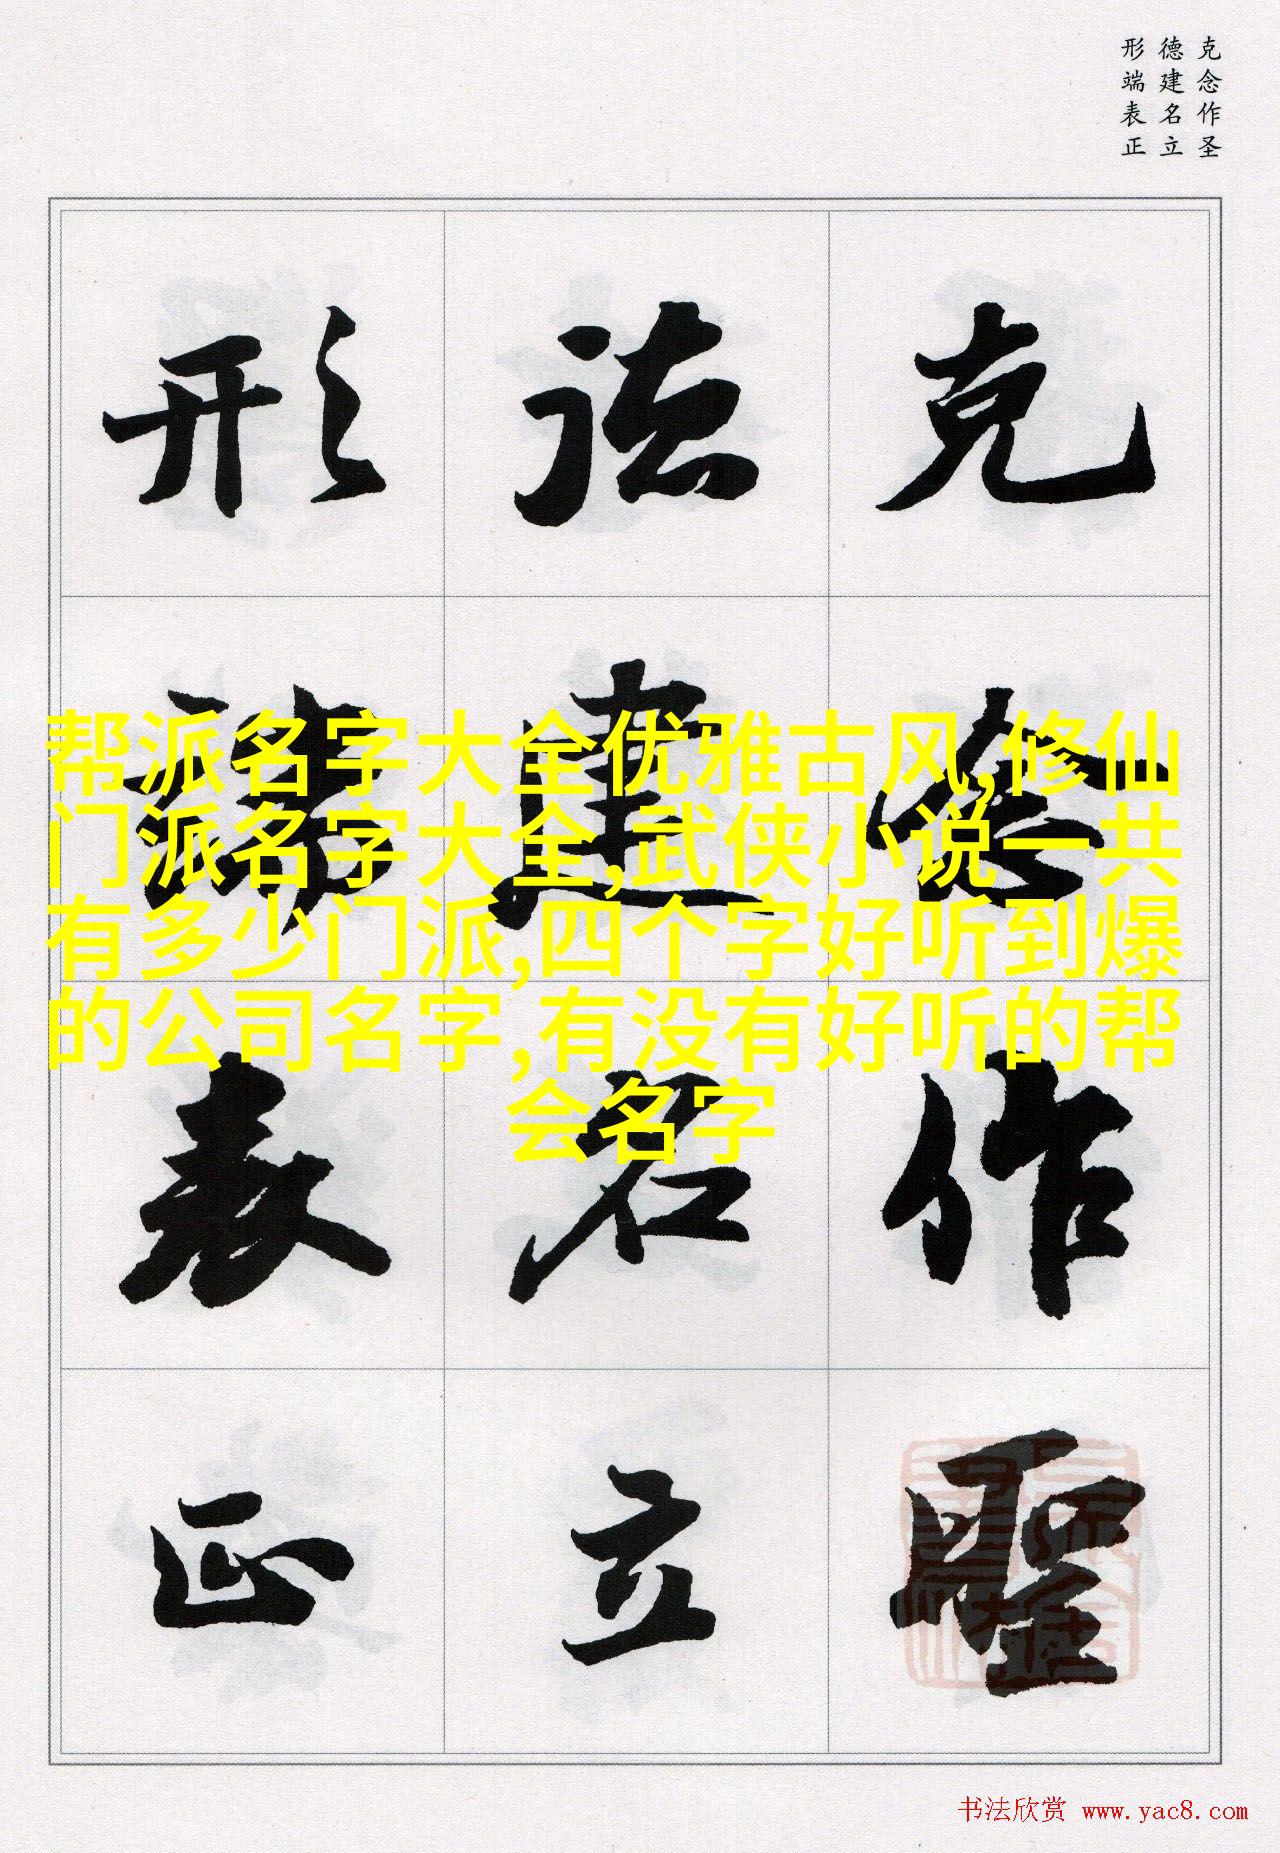 克念作圣
德建名立
形端表正
克念作聖
德建名立
形端表正
帮派名字大全优雅古风,修仙
门派名字大全,武侠小说一共
有多少门派,四个字好听到爆
的公司名字,有没有好听的帮
会名字
书法欣赏 www.yac8.com